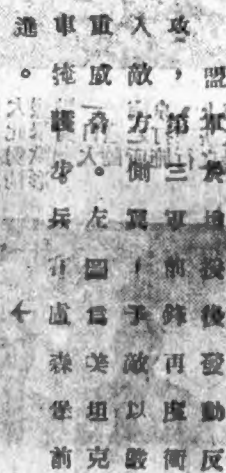 盟軍於增援後發動反
攻,第三軍前鋒再度衝
入敵方側翼,予敵以嚴
重威脅。左圖爲美坦克
車掩護步兵向盧森堡前
進。 ←